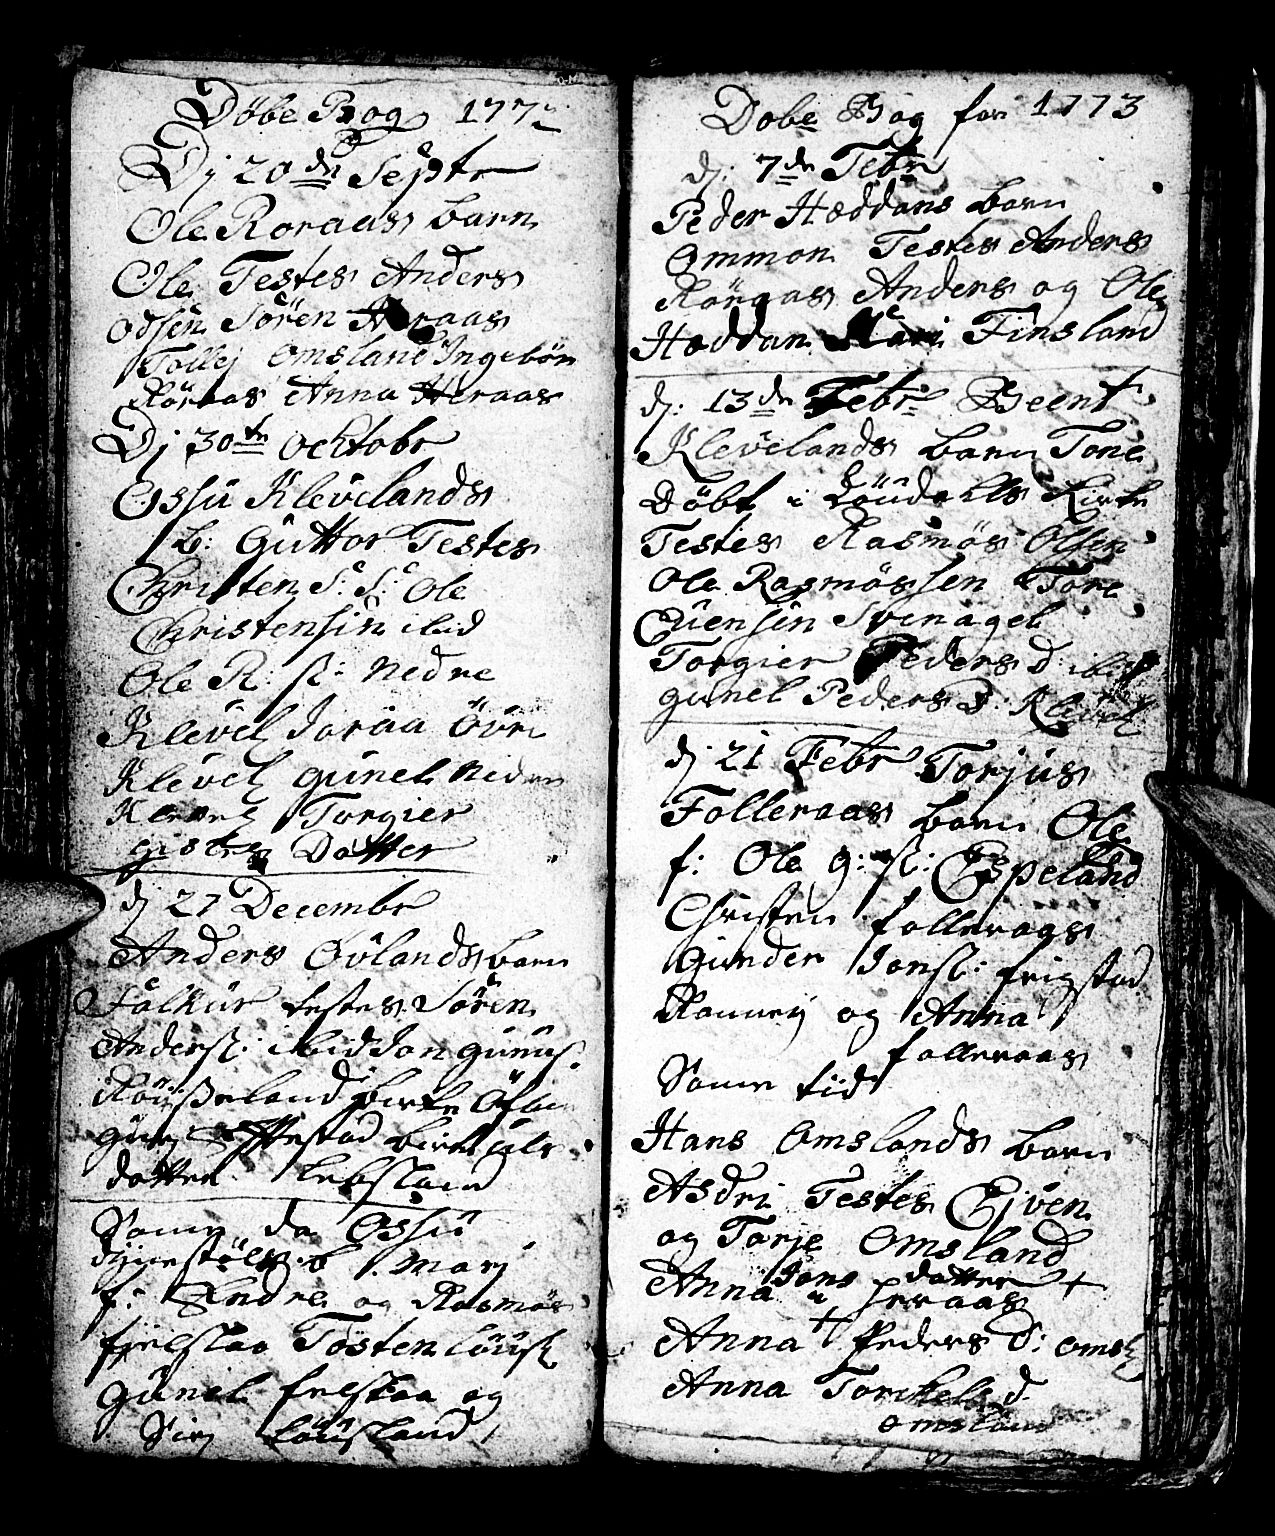 Döbe Bog 1772
Dj 20de Septr
Ole Roraas barn
Ole Testes Anders
Odsen Sören Heraas
Tollej Omsland Ingebör
Röraas Anna Heraas
Dj 30te Ochtobr
Ossu Klevelands
b: Guttor Testes
Christen S: S: Ole
Christensön ibid
Ole R: sl: nedre
Klevel Joraa Övre
Klevel gunel Nedre
Klevel Torgier
Datter
dj 27 Decembr
Anders Ovlands barn
Falkur testes Sören
Anders: ibid Jon
birte
gurj birte
datter Lebsland
Same da Ossu
b. Marj
f: Andre og Rasmös
fjelskaa Tosten
Gunel felskaa og
Sirj Löusland
Dobe Bog for 1773
dj: 7de Febr
Peder Hoddans barn
Ommon Testes Anders
Röraas Anders og Ole
Hoddan Kari Finsland
dj: 13de Febr Beent
Klevelands barn Tone
Döbt i Löudahls Kirke
Testes Rasmös Olsen
Ole Rasmössen Tore
Evensen Svenagel
Torgier Peders d: ibid
gunel Peders d: Klevel
dj 21 Febr Torjus
Folleraas barn Ole
f: Ole g: sl: Espeland
Christen folleraas
Gunder Jonsl: frigstad
Ranvej og Anna
folleraas
Same tid
Hans Omslands barn
Asdri Testes Ejven
og Torje Omsland
Anna Jons datter +
Heraas
Anna + Peders d: omsl
Anna Torckels d
omsland